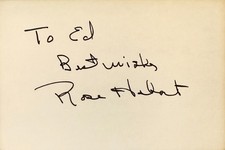 To Ed
Best wishes
Rose Hobart